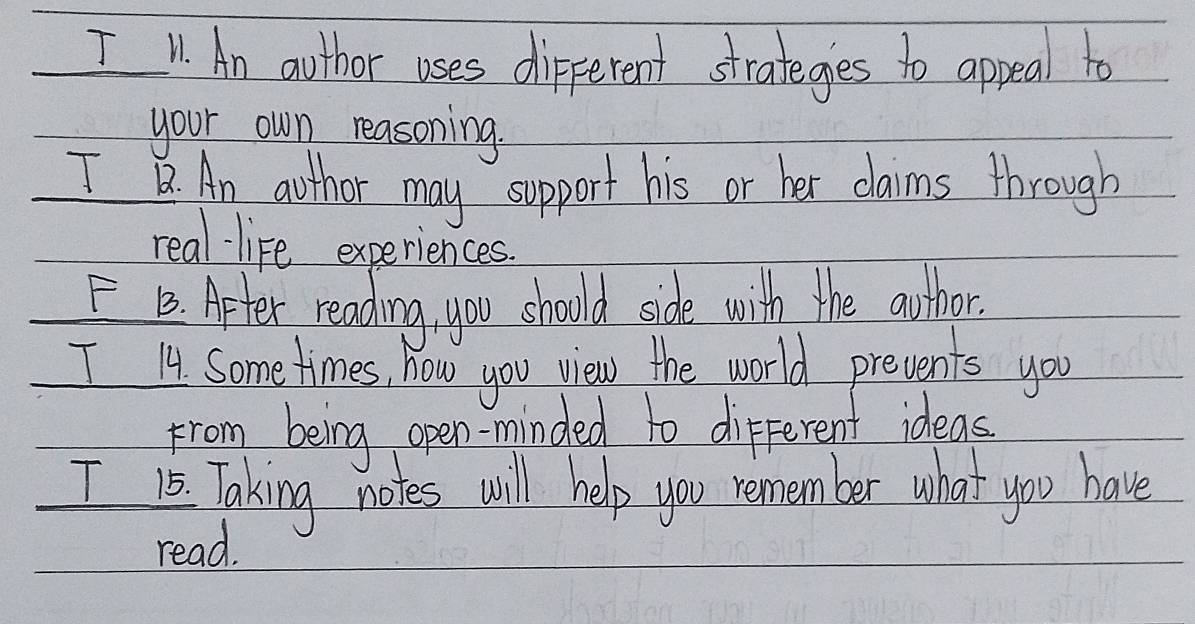 T 11. An author uses different strategies to appeal to
your own reasoning.
T 12. An author may support his or her claims through
real-life experiences.
F 13. After reading, you should side with the author.
T 14. Sometimes, how you view the world prevents you
from being open-minded to different ideas.
T 15. Taking notes will help you remember what you have
read.